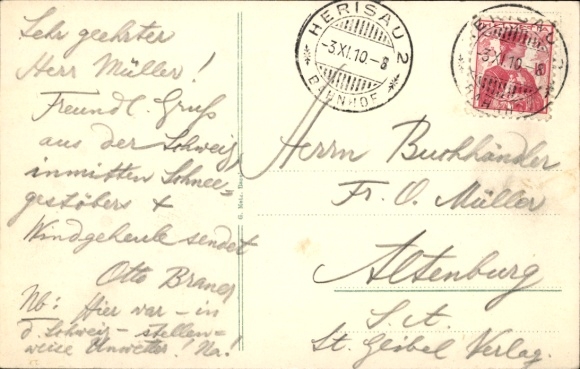 Sehr geehrter
Herr Müller!
Freundl. Gruß
aus der Schweiz
inmitten Schnee-
gestöbers &
Windgeheule sendet
Otto
Nb: Hier war – in
d. Schweiz – stellen=
weise Unwetter! Na!
HERISAU 2
-3.XI.10.-8
BAHNHOF
HERISAU 2
3.XI.10
Herrn Buchhändler
Fr. O. Müller
Altenburg
S. A.
St. Geibel Verlag.